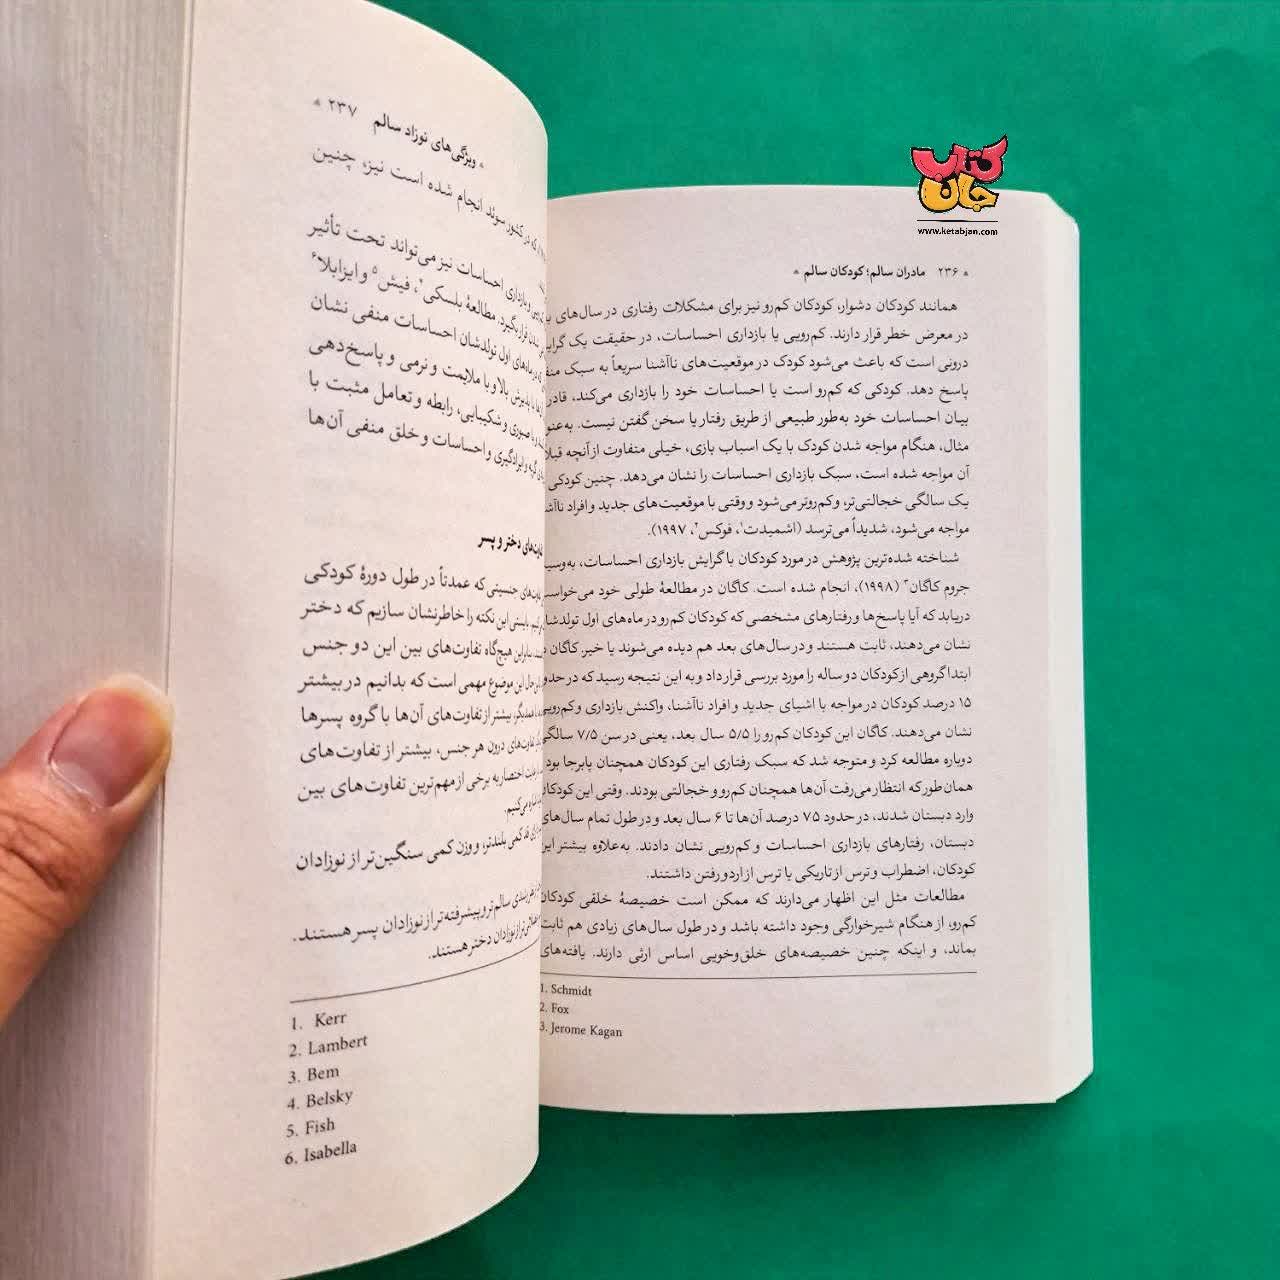 کتاب جان
www.ketabjan.com
۲۳۶ مادران سالم؛ کودکان سالم
همانند کودکان دشوار، کودکان کم‌رو نیز برای مشکلات رفتاری در سال‌های
در معرض خطر قرار دارند. کم‌رویی یا بازداری احساسات، در حقیقت یک
درونی است که باعث می‌شود کودک در موقعیت‌های ناآشنا سریعاً به سبک
پاسخ دهد. کودکی که کم‌رو است یا احساسات خود را بازداری می‌کند، قادر
بیان احساسات خود به‌طور طبیعی از طریق رفتار یا سخن گفتن نیست.
مثال، هنگام مواجه شدن کودک با یک اسباب بازی، خیلی متفاوت از آنچه
آن مواجه شده است، سبک بازداری احساسات را نشان می‌دهد. چنین کودکی
یک سالگی خجالتی‌تر، و کم‌روتر می‌شود و وقتی با موقعیت‌های جدید و افراد
مواجه می‌شود، شدیداً می‌ترسد (اشمیدت۱، فوکس۲، ۱۹۹۷).
شناخته شده‌ترین پژوهش در مورد کودکان با گرایش بازداری احساسات،
جروم کاگان۳ (۱۹۹۸)، انجام شده است. کاگان در مطالعهٔ طولی خود
دریابد که آیا پاسخ‌ها و رفتارهای مشخصی که کودکان کم‌رو در ماه‌های اول
نشان می‌دهند، ثابت هستند و در سال‌های بعد هم دیده می‌شوند یا خیر. کاگان
ابتدا گروهی از کودکان دو ساله را مورد بررسی قرار داد و به این نتیجه رسید که در
۱۵ درصد کودکان در مواجه با اشیای جدید و افراد ناآشنا، واکنش بازداری و
نشان می‌دهند. کاگان این کودکان کم‌رو را ۵/۵ سال بعد، یعنی در سن ۷/۵
دوباره مطالعه کرد و متوجه شد که سبک رفتاری این کودکان همچنان پابرجا بود
همان طور که انتظار می‌رفت آن‌ها همچنان کم‌رو و خجالتی بودند. وقتی این
وارد دبستان شدند، در حدود ۷۵ درصد آن‌ها تا ۶ سال بعد و در طول تمام سال‌های
دبستان، رفتارهای بازداری احساسات و کم‌رویی نشان دادند. به‌علاوه بیشتر این
کودکان، اضطراب و ترس از تاریکی یا ترس از اردو رفتن داشتند.
مطالعات مثل این اظهار می‌دارند که ممکن است خصیصهٔ خلقی کودکان
کم‌رو، از هنگام شیرخوارگی وجود داشته باشد و در طول سال‌های زیادی هم ثابت
بماند، و اینکه چنین خصیصه‌های خلق‌وخویی اساس ارثی دارند. یافته‌های
1. Schmidt
2. Fox
3. Jerome Kagan
ویژگی‌های نوزاد سالم ۲۳۷
که در کشور سوئد انجام شده است نیز، چنین
و بازداری احساسات نیز می‌تواند تحت تأثیر
قرار بگیرد. مطالعهٔ بلسکی۴، فیش۵ و ایزابلا۶
که در ماه‌های اول تولدشان احساسات منفی نشان
با پذیرش بالا و با ملایمت و نرمی و پاسخ‌دهی
صبوری و شکیبایی، رابطه و تعامل مثبت با
گریه و ایرادگیری و احساسات و خلق منفی آن‌ها
دختر و پسر
جنسیتی که عمدتاً در طول دورهٔ کودکی
بایستی این نکته را خاطرنشان سازیم که دختر
بنابراین هیچ‌گاه تفاوت‌های بین این دو جنس
این موضوع مهمی است که بدانیم در بیشتر
با همدیگر، بیشتر از تفاوت‌های آن‌ها با گروه پسرها
تفاوت‌های درون هر جنس، بیشتر از تفاوت‌های
اختصار به برخی از مهم‌ترین تفاوت‌های بین
می‌کنیم.
قد کمی بلندتر، و وزن کمی سنگین‌تر از نوزادان
سالم‌تر و پیشرفته‌تر از نوزادان پسر هستند.
از نوزادان دختر هستند.
1. Kerr
2. Lambert
3. Bem
4. Belsky
5. Fish
6. Isabella